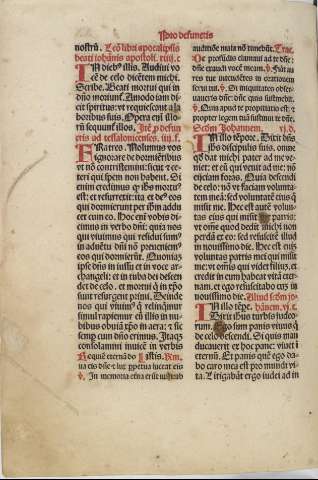 Pro defunctis
nostrū. Lectio libri apocalipsis
beati iohānis apostoli. xiiij. c
IN dieb⁹ illis. Audiui vo
cē de celo dicētem michi.
Scribe. Beati mortui qui in
dño moriunt̃. Amodo iam di
cit spiritus: vt requiescāt a la
boribus suis. Opera em̃ illo-
rū sequunt̃ illos. Itē p̱ defun
FRatres. Nolumus vos
ignorare de dormiētibus
vt nō contristemini: sicut ⁊ ce-
teri qui spem non habent. Si
enim credimus q̱ ihs̄ mortu⁹
est ⁊ resurrexit: ita ⁊ de⁹ eos
qui dormierunt per ihm̄ addu
cet cum eo. Hoc em̄ vobis di-
cimus in verbo dñi: quia nos
qui viuimus qui residui sum⁹
in aduētu dñi nō preueniem⁹
eos qui dormierūt. Quoniaz
ip̄e dñs in iussu et in voce ar-
changeli: et in tuba dei descen
det de celo. et mortui q̄ in xp̄o
sunt resurgent primi. Deinde
nos qui viuim⁹ q̄ relinq̄mur
simul rapiemur cū illis in nu-
bibus obuiā xp̄o in aera: ⁊ sic
semp cum dño erimus. Itaq̄z
consolamini inuicē in verbis
istis.
Requiē eternā do
na eis dñe: ⁊ lux ppetua luceat eis
v. In memoria etna erūt
auditiōe mala nō timebūt. Trac.
De profūdis clamaui ad te dñe:
dñe exaudi vocē meam. v. Fiāt au
res tue intēdētes in orationem
serui tui. v. Si iniquitates obser-
uaueris dñe: dñe quis sustinebit.
v. Quia apud te propiciatio est: ⁊
propter legem tuā sustinui te dñe.
Scďm Johannem. vj. d.
IN illo tp̄ore. Dixit ihs̄
discipulis suis. omne
qd̄ dat michi pater ad me ve-
niet: et eū qui venit ad me: nō
eijciam foras. Quia descendi
de celo: nō vt faciam volunta-
tem meā: sed voluntatē eius q̄
misit me. Hec est aūt volun-
tas eius qui misit me patris:
vt omne quod dedit michi non
perdā ex eo: sed resuscitē illud
in nouissimo die. Hec est em̄
voluntas patris mei qui misit
me: vt omnis qui videt filiuz et
credit in eum habeat vitā eter-
nam. et ego resuscitabo eum in
nouissimo die. Aliud scďm jo-
hānem. vj. c.
IN illo tēpe.
Dixit ihs̄ turbis iudeo
rum. Ego sum panis viuus q̄
de celo descendi. Si quis man
ducauerit ex hoc pane: viuet ī
eternū. Et panis quē ego da-
bo caro mea est pro mundi vi-
ta. Litigabāt ergo iudei ad in